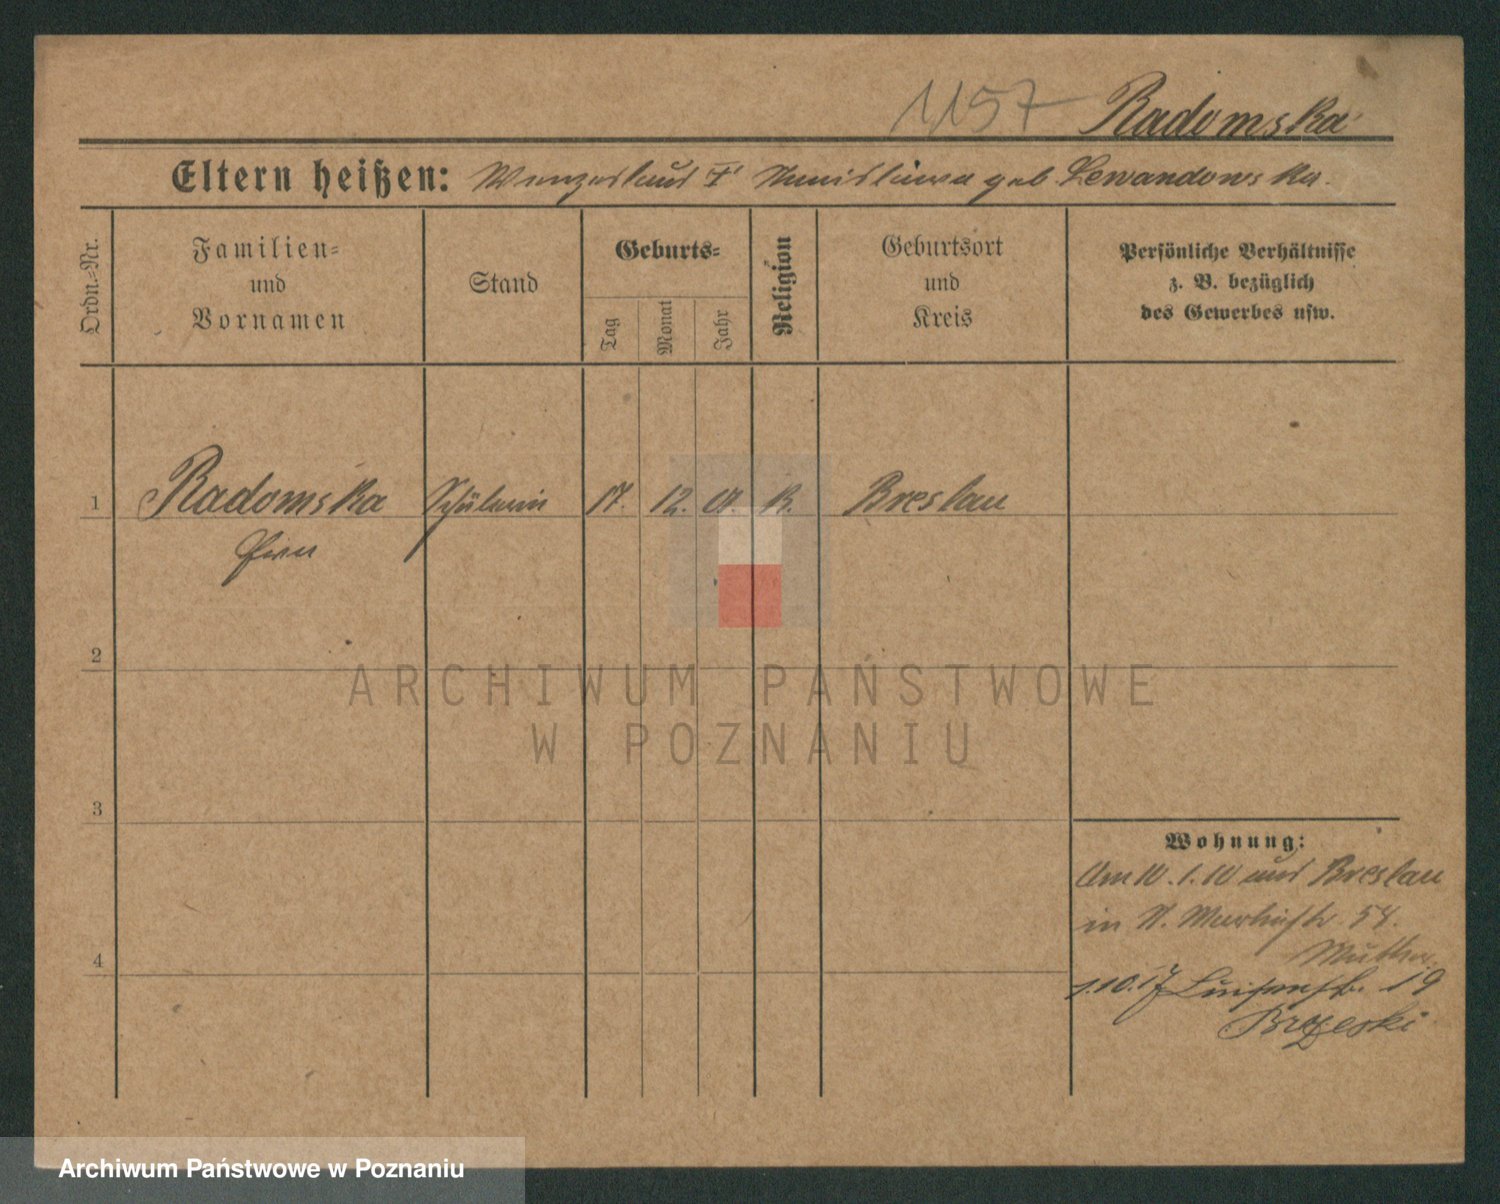 1157 Radomska
Eltern heißen: Wenzeslaus u. geb. Lewandowska.
Ordn.-Nr.
Familien-
und
Vornamen
Stand
Geburts-
Tag
Monat
Jahr
Religion
Geburtsort
und
Kreis
Persönliche Verhältnisse
z. B. bezüglich
des Gewerbes usw.
1 Radomska Schülerin 17. 12. 01. K. Breslau
2
3
4
Wohnung:
Am 10.1.10 aus Breslau
in St. Martinstr. 54.
Mutter.
1.10.17 Luisenstr. 19
Brzeski
ARCHIWUM PAŃSTWOWE
W POZNANIU
Archiwum Państwowe w Poznaniu